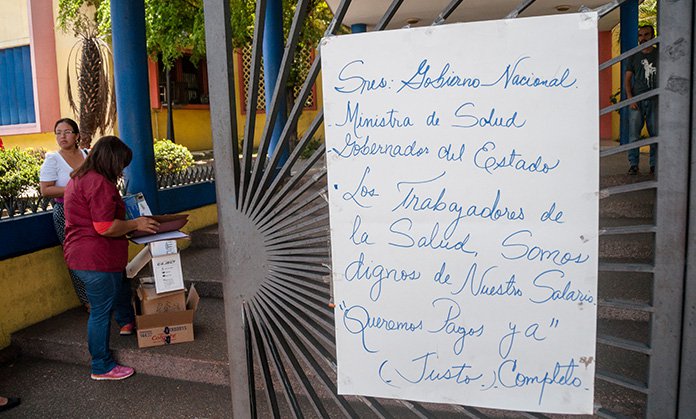 Sres: Gobierno Nacional.
Ministra de Salud
Gobernador del Estado
Los Trabajadores de
la Salud, Somos
dignos de Nuestro Salario
"Queremos Pagos ya"
(Justo, Completo.